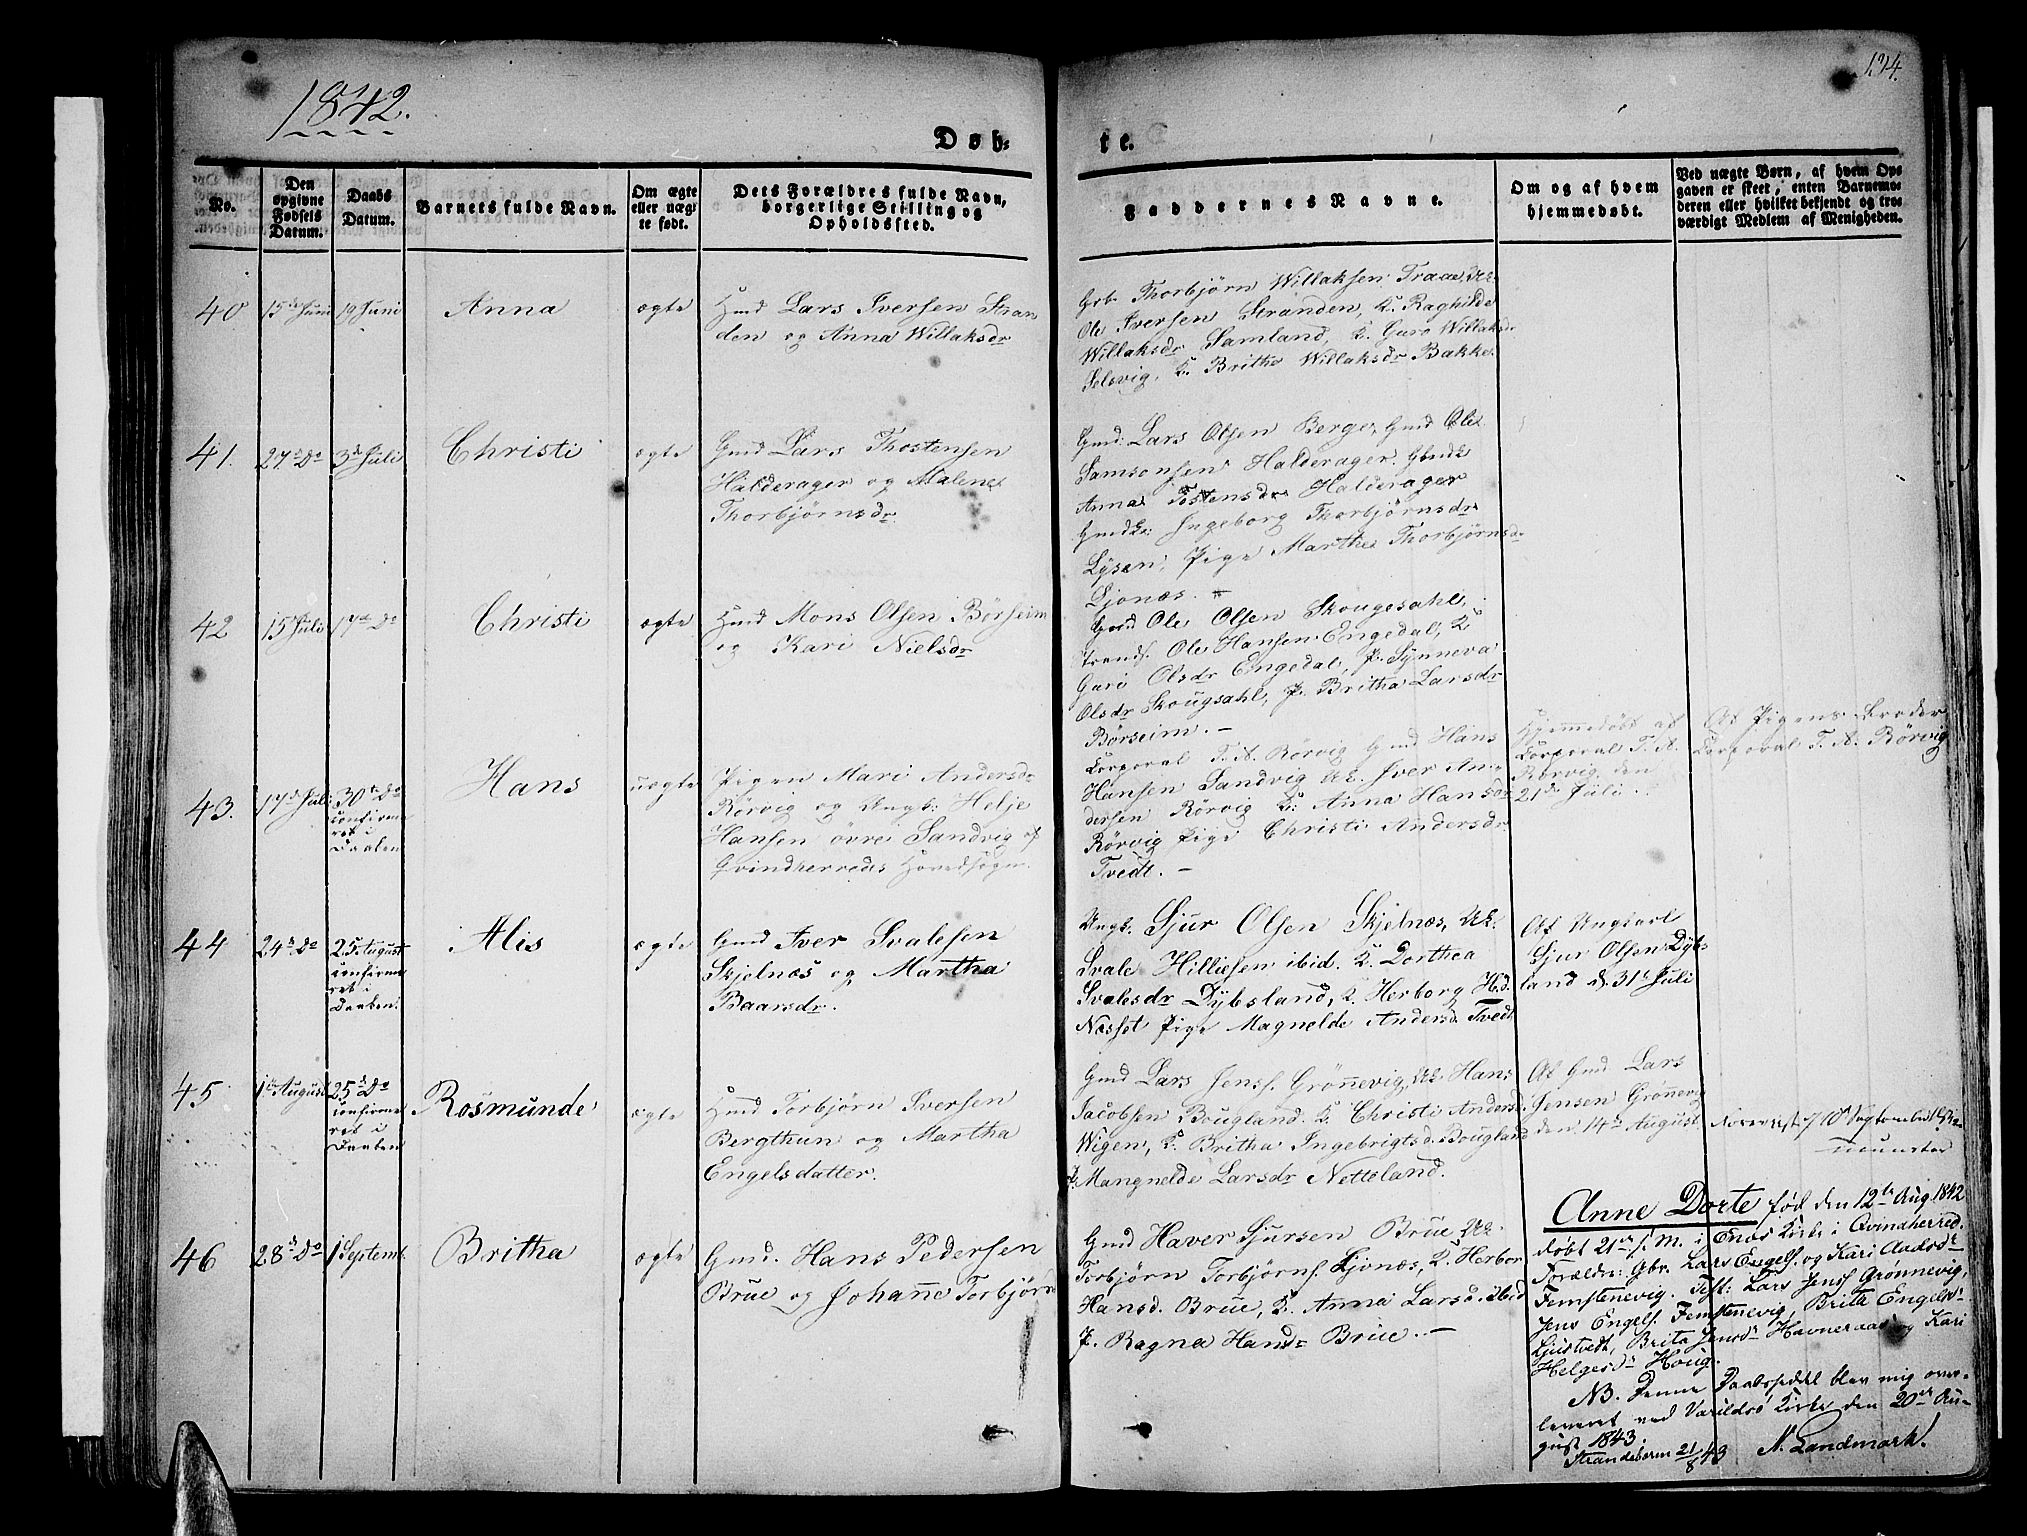 1842.
124.
Døb-
te.
No.
Den
opgivne
Fødsels
Datum.
Daabs
Datum.
Barnets fulde Navn.
Om ægte
eller uæg
te født.
Dets Forældres fulde Navn,
borgerlige Stilling og
Opholdssted.
Faddernes Navne.
Om og af hvem
hjemmedøbt.
Ved uægte Børn, af hvem Op-
gaven er skeet, enten Barnemo-
deren eller hvilket bekjendt og tro-
værdigt Medlem af Menigheden.
40
15de Juni
19 Juni
Anna
ægte
Hmd Lars Iversen Stran
den og Anna Willaksdr
Grb. Thorbjörn Willaksen Traae, UK.
Ole Iversen Stranden, K. Raghilde
Willaksdr Samland, K. Guro Willaksdr
Selsvig, K. Britha Willaksdr Bakke.
41.
27de Do
3de Juli
Christi
ægte
Gmd Lars Thostensen
Halderager og Malene
Thorbjörnsdr
Gmd: Lars Olsen Berge, Gmd Ole
Samsonsen Halderager.
Anna Tostensdr Halderager
Gmdk: Ingeborg Thorbjörnsdr
Lysen, Pige Marthe Thorbjörnsdr
Ljonæs.
42
15 Juli
17de Do
Christi
ægte
Hmd Mons Olsen Börseim
og Kari Nielsdr
Gmd Ole Olsen Skougesahl,
Strands. Ole Hansen Engedal, K.
Guri Olsdr Engedal, P. Synneva
Olsdr Skougsahl, P. Britha Larsdr
Börseim. -
43.
17de Juli
30te Do
confirme
ret i
Daaben
Hans
uægte
Pigen Mari Andersdr
Rörvig og Ungk: Helje
Hansen övre Sandvig af
Qvindherreds Hovedsogn.
Corporal T. A. Rörvig Gmd Hans
Hansen Sandvig UK. Iver An-
dersen Rörvig K: Anna Hansdr
Rörvig Pige Christi Andersdr
Tvedt. -
Hjemmedöbt af
Corporal T. A.
Rörvig den
21de Juli.
Af Pigens Broder
Corporal T. A. Rörvig
44
24de Do
25 August
confirme
ret i
Daaben.
Alis
ægte
Gmd Iver Svalesen
Skjelnæs og Martha
Baarsdr.
Ungk. Sjur Olsen Skjelnæs, UK.
Svale Hilliesen ibid. K. Dorthea
Svalesdr Dybsland, K. Herborg H.d.
Næsset Pige Magnelde Andersd. Tvedt
Af Ungkarl
Sjur Olsen Dybs-
land d. 31te Juli
45
1ste August
25de Do
confirme
ret i
Daaben
Rosmunde
ægte
Hmd Torbjörn Iversen
Bergthun og Martha
Engelsdatter.
Gmd Lars Jens. Grönnevig, UK. Hans
Jacobsen Bougland. K. Christi Andersd.
Wigen, K. Britha Ingebrigtsd. Bougland
P. Mangnelde Larsdr Netteland.
Af Gmd Lars
Jensen Grönnevig
den 14de August
46
28de Do
1 Septemb.
Britha
ægte
Gmd. Hans Pedersen
Brue og Johanne Torbjörnsd
Gmd Haver Sjursen Brue, UK.
Torbjörn Torbjörns. Ljonæs, K. Herbor
Hansd. Brue, K. Anna Larsd. ibid
P. Ragna Hansdr Brue. -
Anne Dorte föd den 12te Aug 1842
döbt 21de s. M. i Enæs Kirke i Qvindherred.
Forældre: Gbr. Lars Engels. og Kari Andsdr
Femstenevig. Test: Lars Jens Grönnevig,
Jens Engels. Femstenevig, Brita Engelsdr
Ljustvedt, Brita Jensdr Havneraas og Kari
Helgesdr Houg.
NB. Denne Daabsseddel blev mig over-
leveret ved Varildsö Kirke den 20de Au-
gust 1843.
Strandebarm 21/8 43 N. Landmark.